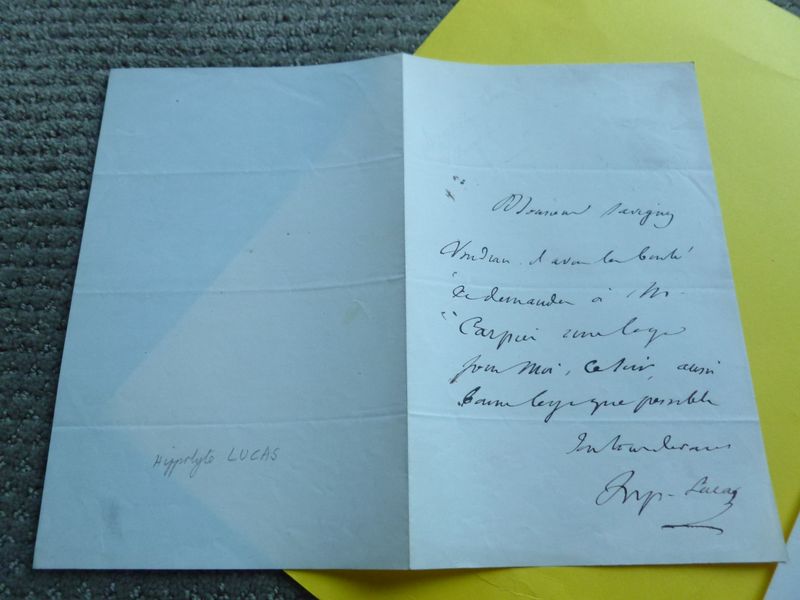 Hippolyte LUCAS
Monsieur Savigny
Voudrait il avoir la bonté
de demander à M.
Carpier une loge
pour moi, ce soir, aussi
bonne loge que possible
Hip. Lucas